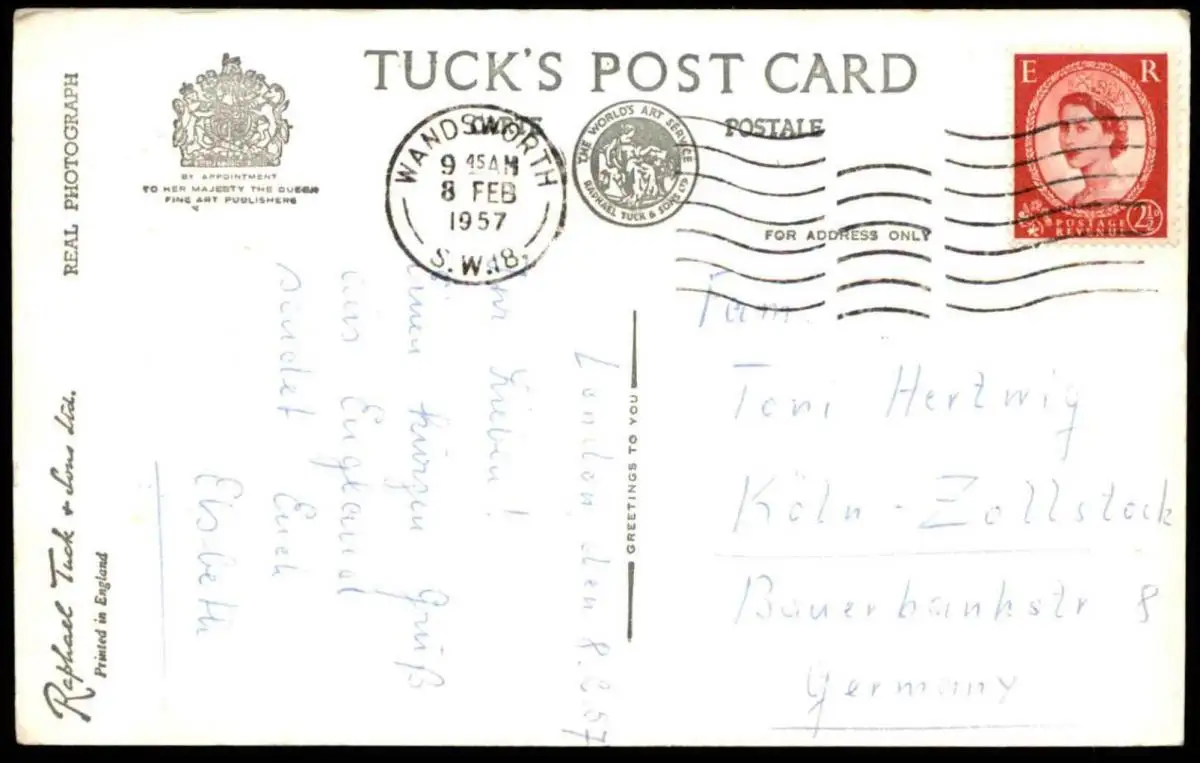 TUCK'S POST CARD
CARTE POSTALE
REAL PHOTOGRAPH
BY APPOINTMENT
TO HER MAJESTY THE QUEEN
FINE ART PUBLISHERS
WANDSWORTH
9 45 AM
8 FEB
1957
S.W.18.
THE WORLD'S ART SERVICE
RAPHAEL TUCK & SONS LTD
FOR ADDRESS ONLY
E R
POSTAGE
REVENUE
2½D
London den 8.2.57
Ihr Lieben!
Einen kurzen Gruß
aus England
sendet Euch
Elsbeth
GREETINGS TO YOU
Fam.
Toni Hertwig
Köln - Zollstock
Bauerbankstr 8
Germany
Raphael Tuck & Sons Ltd.
Printed in England